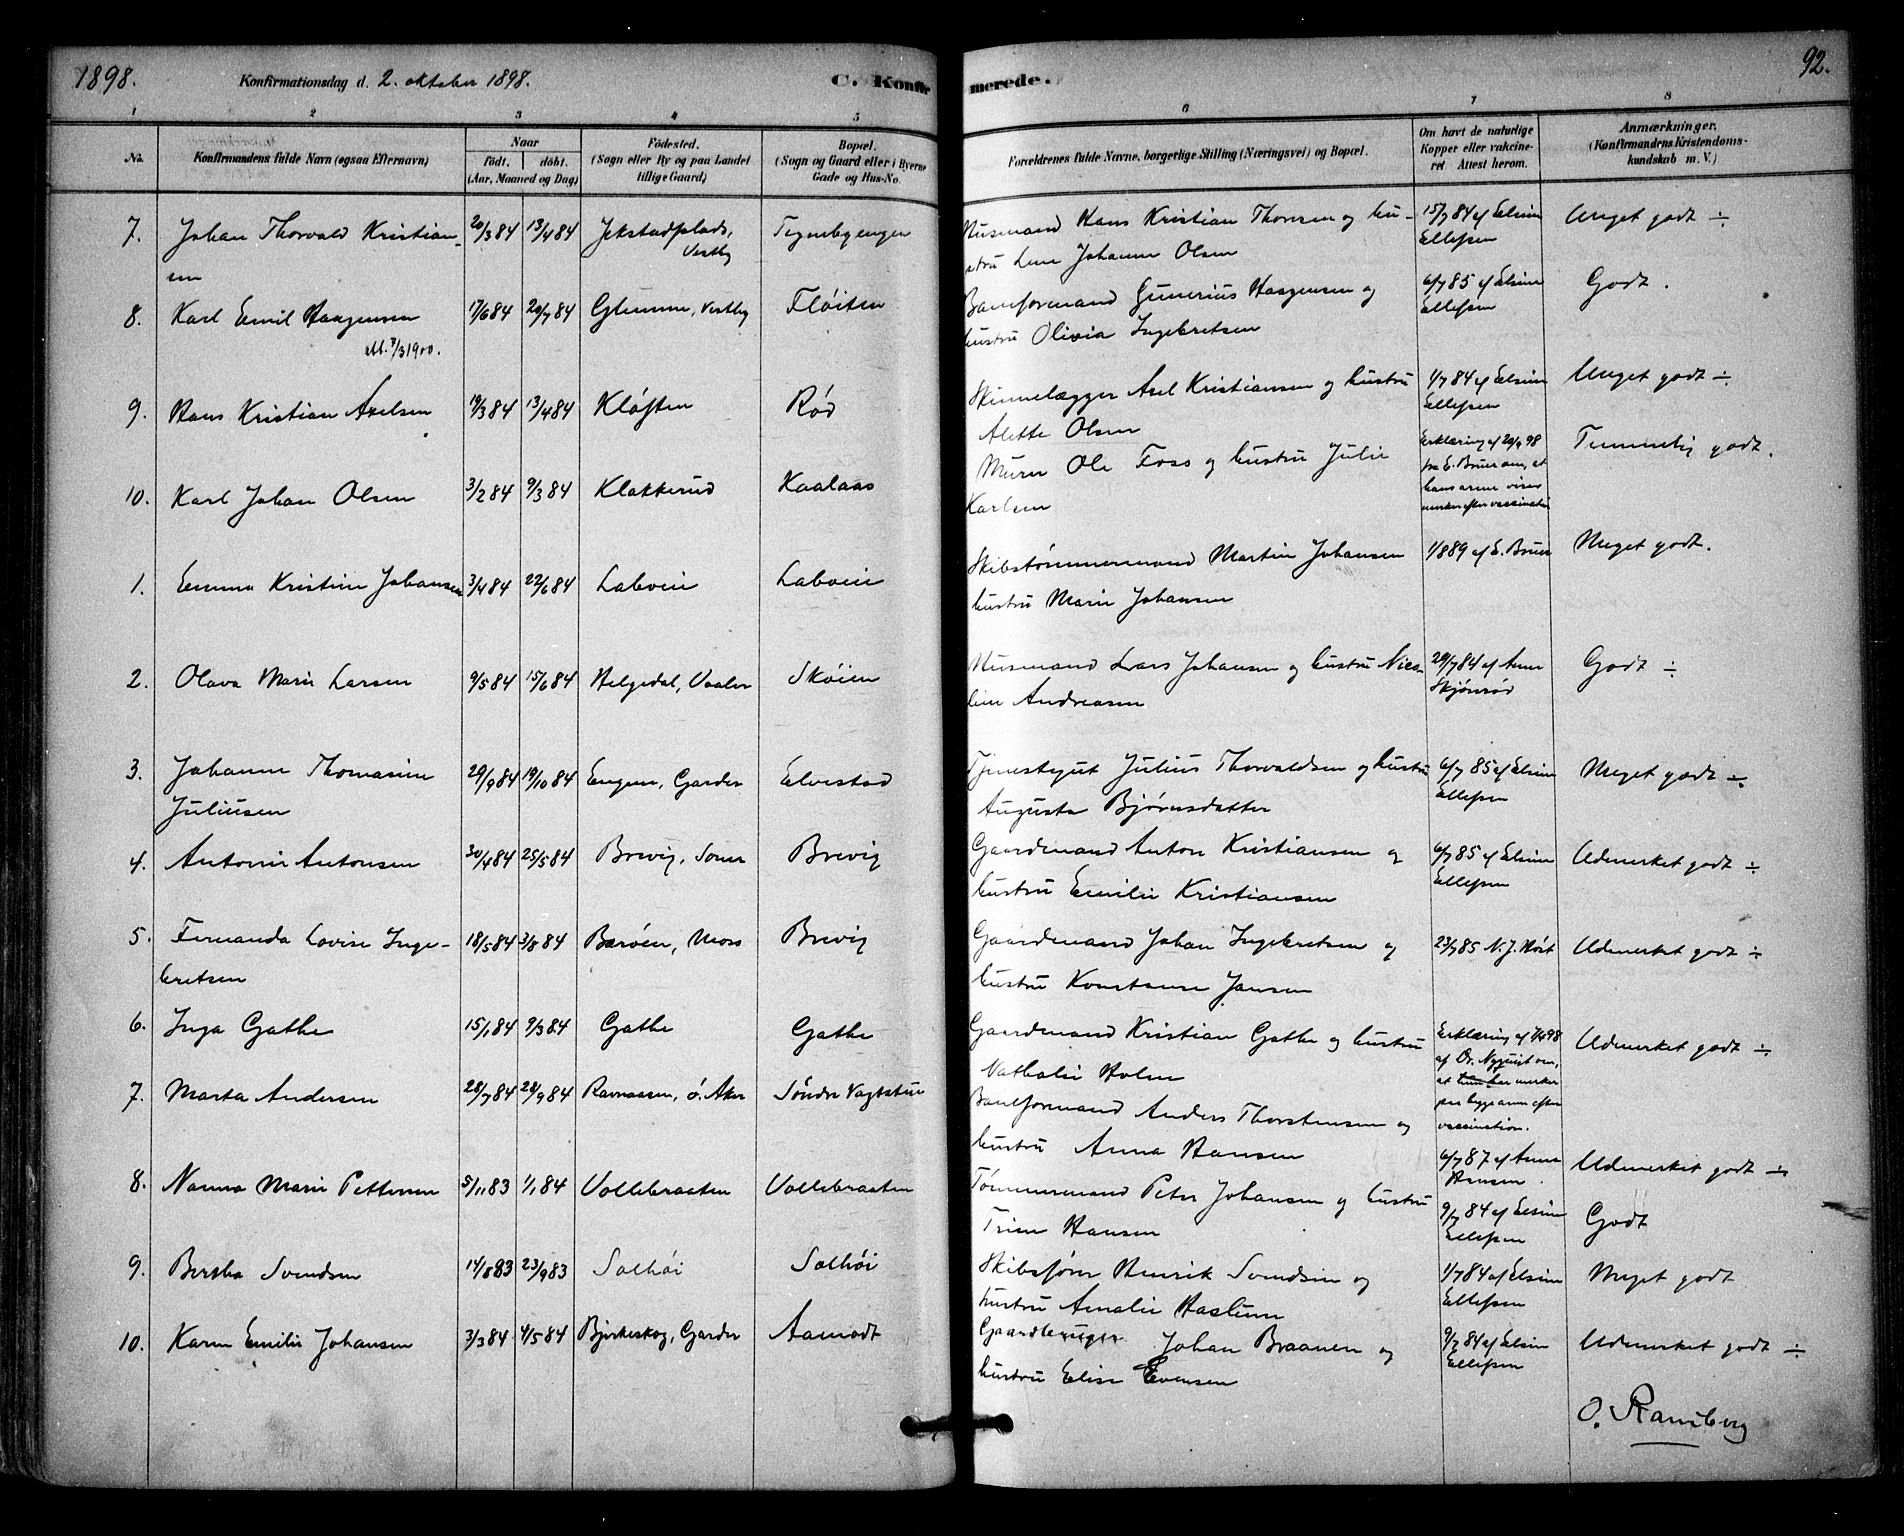 1898. Konfirmationsdag d. 2. oktober 1898. C. Konfir
merede. 92.
1 2 3 4 5
6 7 8
No. Konfirmandens fulde Navn (ogsaa Efternavn) Naar født. døbt. (Aar, Maaned og Dag) Fødested. (Sogn eller By og paa Landet tillige Gaard) Bopæl. (Sogn og Gaard eller i Byerne Gade og Hus-No.
Forældrenes fulde Navne, borgerlige Stilling (Næringsvei) og Bopæl. Om havt de naturlige Kopper eller vakcineret Attest herom. Anmærkninger. (Konfirmandens Kristendomskundskab m. V.)
7. Johan Thorvald Kristian- 20/3 84 13/4 84 Jekstadplads, Tegnebyengen
sen Vestby
Husmand Hans Kristian Thoresen og hu- 15/7 84 af Elsine Meget godt ÷
stru Lene Johanne Olsen Ellefsen
8. Karl Emil Haagensen 17/6 84 20/7 84 Glenne, Vestby Fløiten
att. 7/3 1900.
Baneformand Gunerius Haagensen og 6/7 85 af Elsine Godt.
hustru Olivia Ingebretsen Ellefsen
9. Hans Kristian Axelsen 19/3 84 13/4 84 Kløften Rød
Skinnelægger Axel Kristiansen og hustru 1/7 84 af Elsine Meget godt ÷
Alette Olsen Ellefsen
10. Karl Johan Olsen 3/2 84 9/3 84 Klokkerud Kaalaas
Murer Ole Foss og hustru Julie Erklæring af 20/9 98 Temmelig godt.
Karlsen fra E. Bruu om, at
hans arme viser
merker efter vaccination
1. Emma Kristine Johansen 3/4 84 22/6 84 Labo­veien Laboveien
Skibstømmermand Martin Johansen 1/8 89 af E. Bruu Meget godt.
hustru Marie Johansen
2. Olava Marie Larsen 9/5 84 15/6 84 Helgedal, Vaaler Skøien
Husmand Lars Johansen og hustru Nico- 29/7 84 af Anne Godt ÷
line Andreasen Skjønrød
3. Johanne Thomasine 29/9 84 19/10 84 Engen, Garder Elvestad
Juliusen
Tjenestegut Julius Thorvaldsen og hustru 6/7 85 af Elsine Meget godt ÷
Augusta Bjørnsdatter Ellefsen
4. Antonie Antonsen 30/4 84 25/5 84 Brevig, Soner Brevig
Gaardmand Anton Kristiansen og 6/7 85 af Elsine Udmerket godt ÷
hustru Emilie Kristiansen Ellefsen
5. Fernanda Lovise Inge- 18/5 84 3/8 84 Barøen, Moss Brevig
bretsen
Gaardmand Johan Ingebretsen og 23/7 85 N. J. Høst Udmerket godt ÷
hustru Konstanse Jansen
6. Inga Gathe 15/1 84 9/3 84 Gathe Gathe
Gaardmand Kristian Gathe og hustru Erklæring af 7/4 98 Udmerket godt ÷
Nathalie Holm af Dr. Nyquist om,
at hun har merker
paa begge arme efter
vaccination.
7. Marta Andersen 28/7 84 28/9 84 Ravnaasen, ø. Aker Søndre Vagtstue
Baneformand Anders Thorstensen og
hustru Anna Hansen 6/7 87 af Anna Udmerket godt ÷
Hansen.
8. Nanna Marie Pettersen 5/11 83 1/1 84 Vollebraaten Vollebraaten
Tømmermand Peter Johansen og hustru 9/7 84 af Elsine Godt
Trine Hansen Ellefsen
9. Bertha Svendsen 14/8 83 23/9 83 Solhøi Solhøi
Skibsfører Henrik Svendsen og 1/7 84 af Elsine Meget godt
hustru Amalie Haslum Ellefsen
10. Karen Emilie Johansen 3/3 84 4/5 84 Bjerkeskog, Garder Aamodt
Gaardbruger Johan Braanen og 9/7 84 af Elsine Udmerket godt ÷
hustru Elise Evensen Ellefsen
O. Ramberg